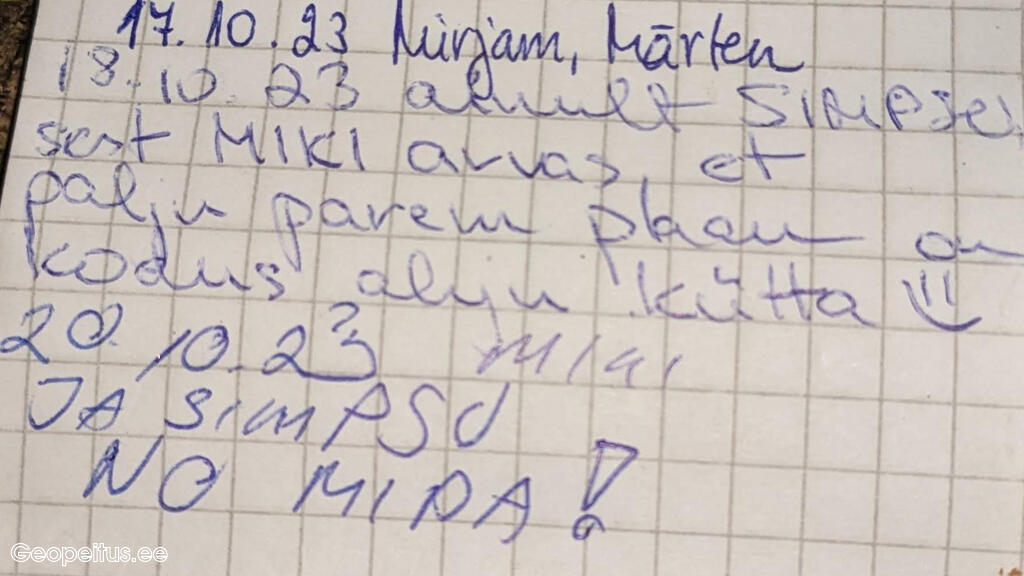 17.10.23 Mirjam, Mārten
18.10.23 ainult SIMPSU,
sest MIKI arvas, et
palju parem plaan on
kodus ahju kütta
20.10.23 MIKI
JA SIMPSU
NO MIDA!
Geopeitus.ee